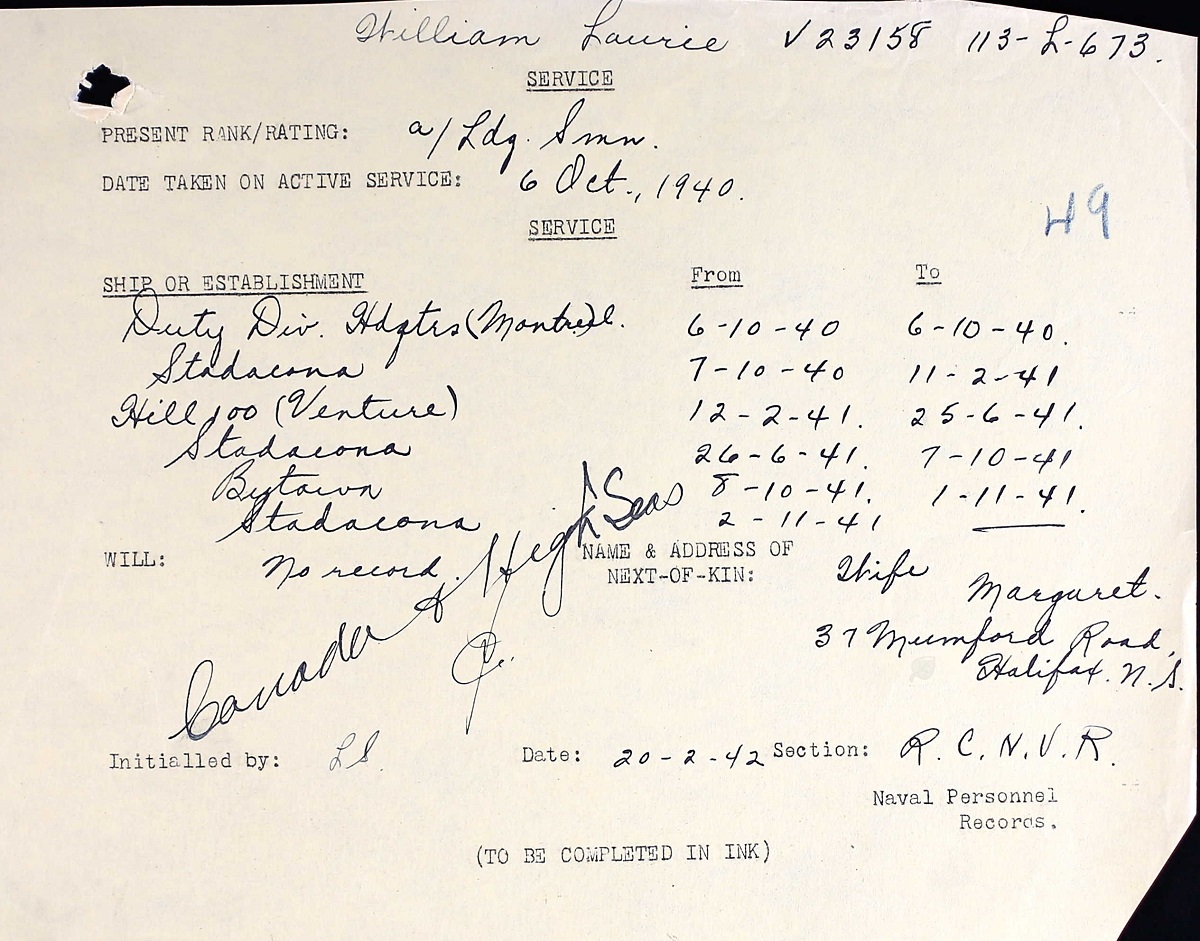 William Laurie V23158 113-L-673.
SERVICE
PRESENT RANK/RATING: a/Ldg. Smn.
DATE TAKEN ON ACTIVE SERVICE: 6 Oct., 1940.
49
SERVICE
SHIP OR ESTABLISHMENT From To
Duty Div. Hdqtrs (Montreal. 6-10-40 6-10-40.
Stadacona 7-10-40 11-2-41
Hill 100 (Venture) 12-2-41. 25-6-41.
Stadacona 26-6-41. 7-10-41
Bytown 8-10-41. 1-11-41.
Stadacona 2-11-41
WILL: No record.
NAME & ADDRESS OF
NEXT-OF-KIN: Wife Margaret.
37 Mumford Road,
Halifax. N.S.
Canada & High Seas
Initialled by: LS. Date: 20-2-42 Section: R.C.N.V.R.
Naval Personnel
Records.
(TO BE COMPLETED IN INK)